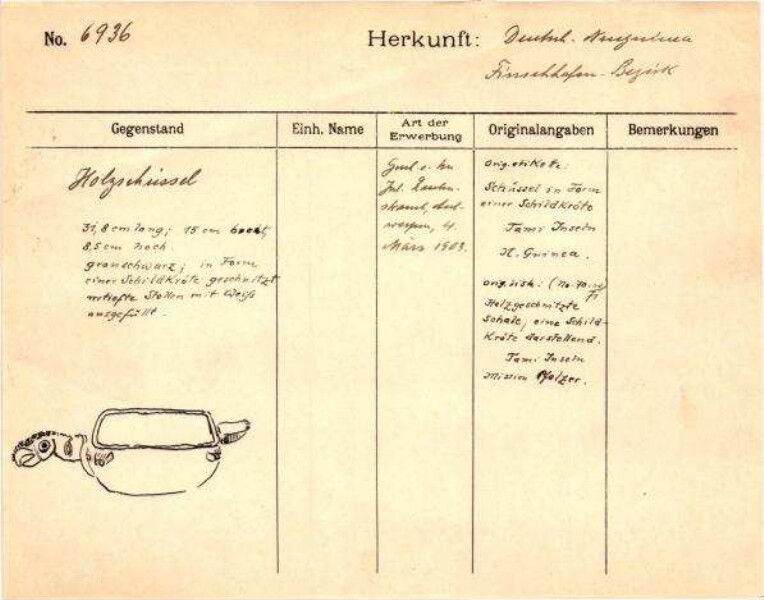 No. 6936
Herkunft: Deutsch-Neuguinea
Finschhafen-Bezirk
Gegenstand
Einh. Name
Art der
Erwerbung
Originalangaben
Bemerkungen
Holzschüssel
31,8 cm lang; 15 cm breit,
8,5 cm hoch.
grauschwarz; in Form
einer Schildkröte geschnitzt
vertiefte Stellen mit Weiß
ausgefüllt.
Jul.
4.
März 1903.
Orig. etikette:
Schüssel in Form
einer Schildkröte
Tami Inseln
N. Guinea.
Orig. lisk: (No.
Holzgeschnitzte
Schale, eine Schild-
kröte darstellend.
Tami Inseln
Mission Pfalzer.